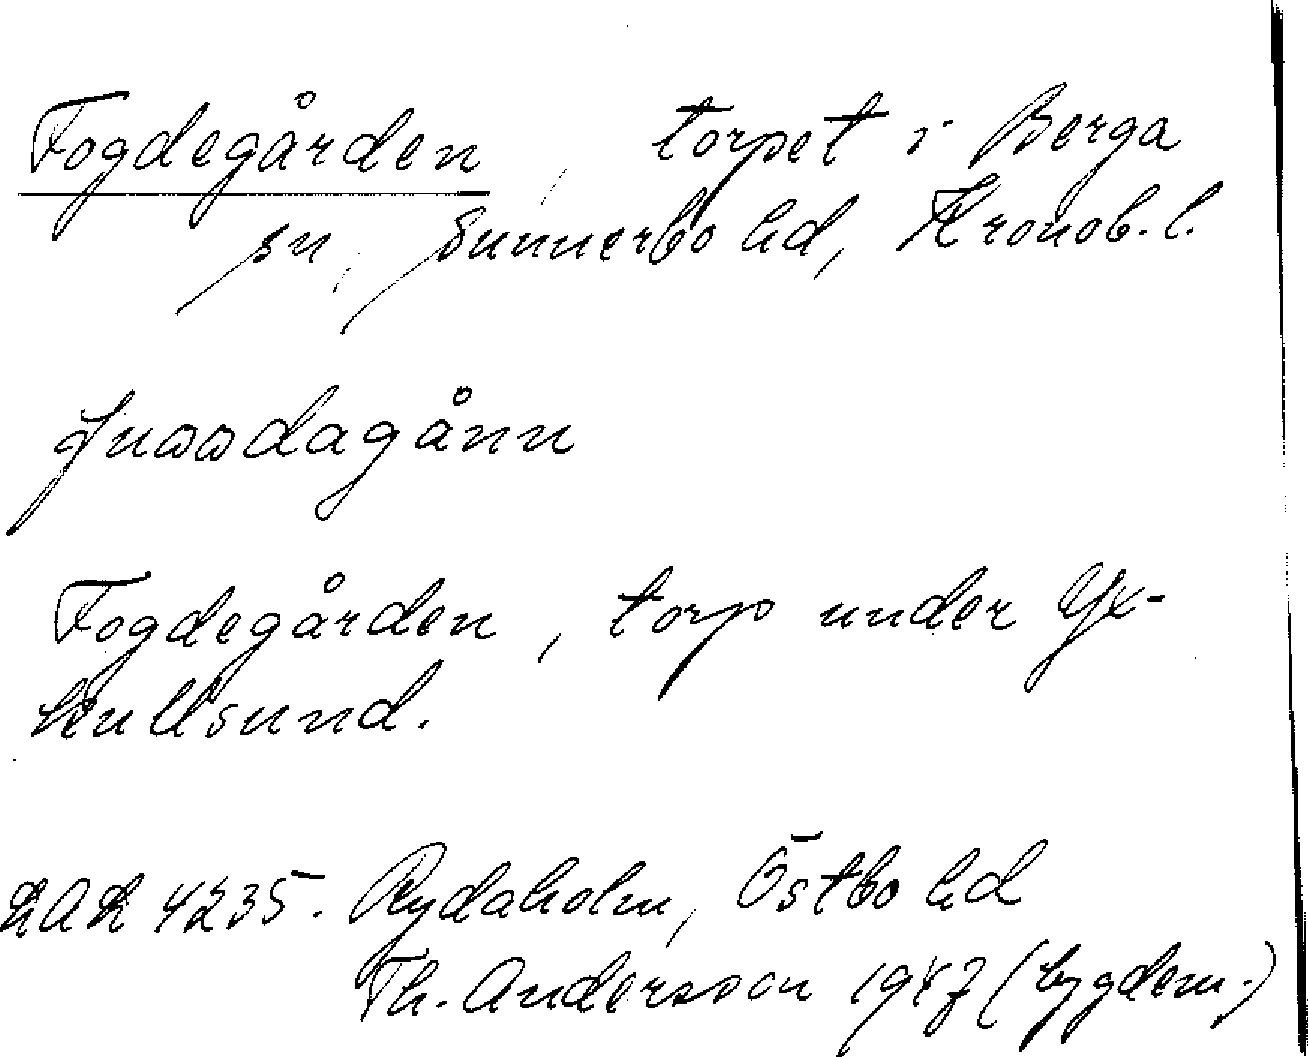 Fogdegården, torpet i Berga
sn, Sunnerbo hd, Kronob. l.
dagånn
Fogdegården, torp under Yx-
kullsund.
4235. Rydaholm, Östbo hd
Th. Andersson 1947 (bygdem.)